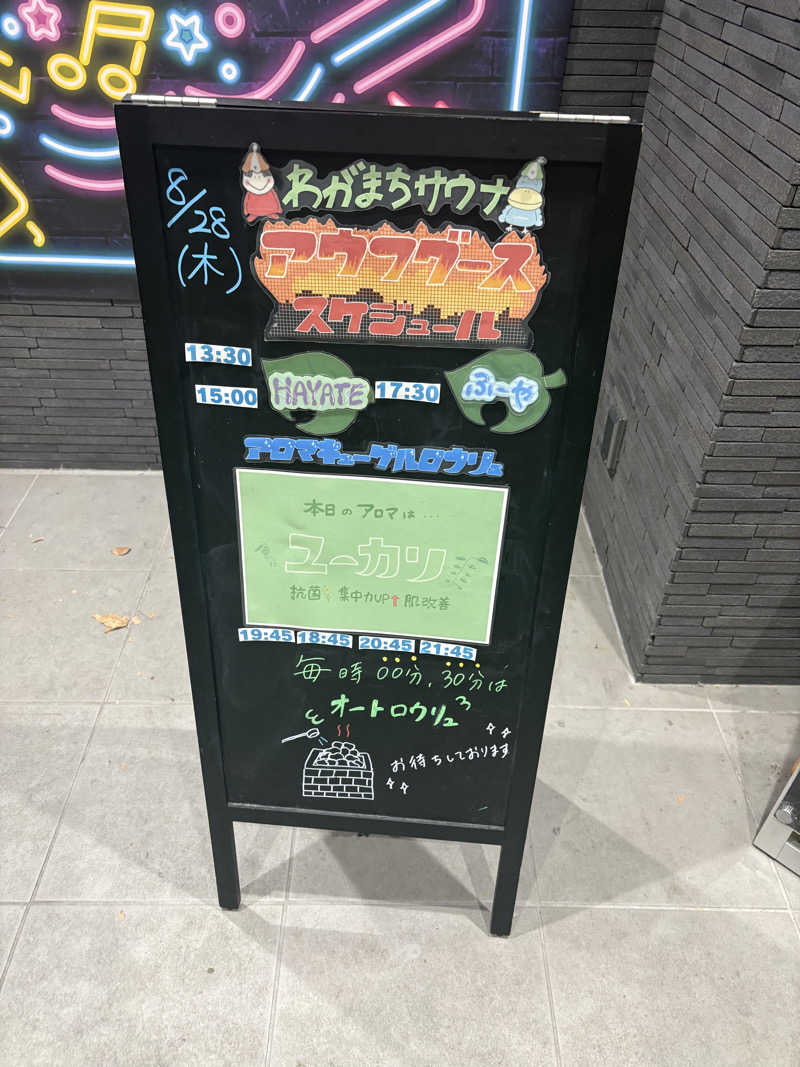 8/28
(木)
わがまちサウナ
アウフグース
スケジュール
13:30
15:00 HAYATE 17:30 ふーや
アロマキューゲルロウリュ
本日のアロマは...
ユーカリ
抗菌 集中力UP↑ 肌改善
19:45 18:45 20:45 21:45
毎時00分、30分は
オートロウリュ
お待ちしております